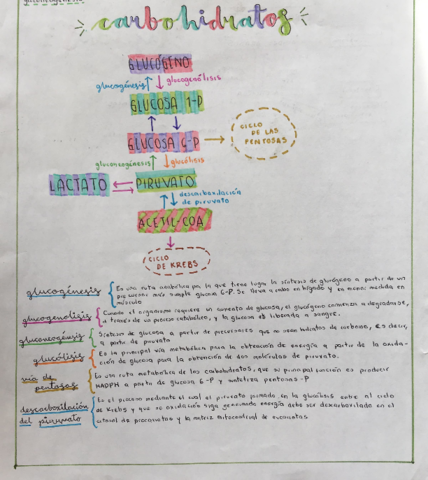 carbohidratos
GLUCÓGENO
glucogénesis glucogenólisis
GLUCOSA 1-P
GLUCOSA 6-P
CICLO
DE LAS
PENTOSAS
gluconeogénesis glucólisis
LACTATO
PIRUVATO
descarboxilación
de piruvato
ACETIL-COA
CICLO
DE KREBS
glucogénesis
Es una ruta anabólica por la que tiene lugar la síntesis de glucógeno a partir de un
precursor más simple glucosa 6-P. Se lleva a cabo en hígado y en menor medida en
músculo
glucogenolisis
Cuando el organismo requiere un aumento de glucosa, el glucógeno comienza a degradarse,
a través de un proceso catabólico, y la glucosa es liberada a sangre.
gluconeogénesis
Síntesis de glucosa a partir de precursores que no sean hidratos de carbono, es decir,
a partir de piruvato
glucólisis
Es la principal vía metabólica para la obtención de energía a partir de la oxida-
ción de glucosa para la obtención de dos moléculas de piruvato.
vía de
pentosas
Es una ruta metabólica de los carbohidratos, que su principal función es producir
NADPH a partir de glucosa 6-P y sintetiza pentosas-P
descarboxilación
del piruvato
Es el proceso mediante el cual el piruvato formado en la glucólisis entra al ciclo
de Krebs y que su oxidación siga generando energía debe ser descarboxilado en el
citosol de procariotas y la matriz mitocondrial de eucariotas.